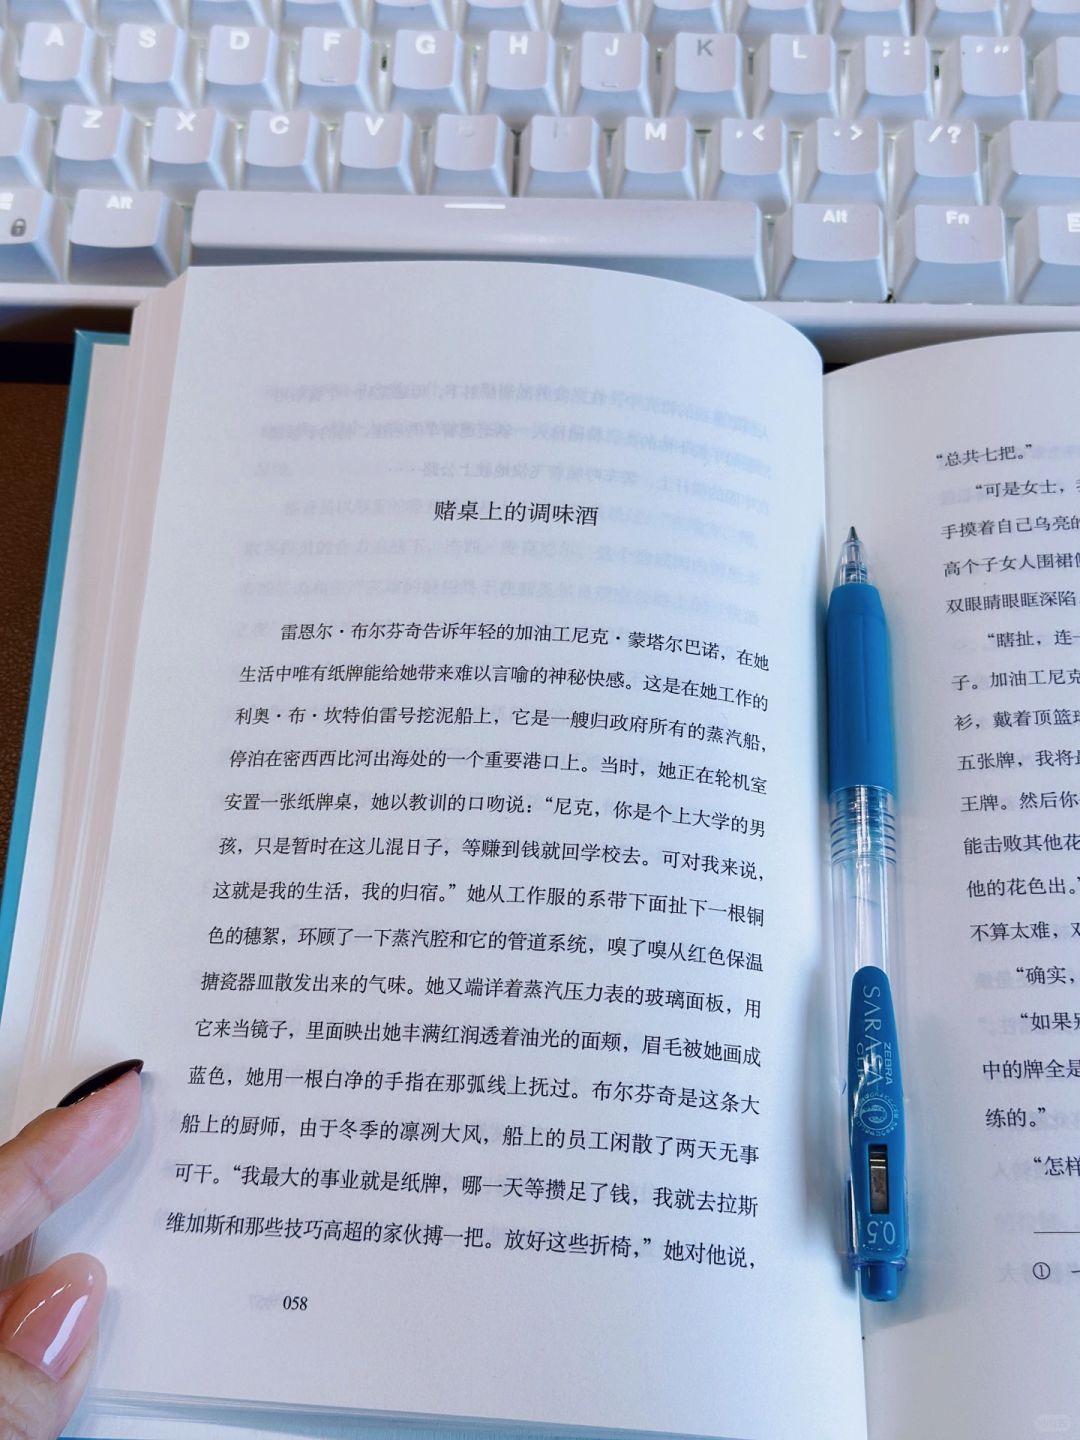 A S D F G H J K L ; : ' "
Z X C V M , < . > / ?
Alt Alt Fn
赌桌上的调味酒
雷恩尔·布尔芬奇告诉年轻的加油工尼克·蒙塔尔巴诺，在她
生活中唯有纸牌能给她带来难以言喻的神秘快感。这是在她工作的
利奥·布·坎特伯雷号挖泥船上，它是一艘归政府所有的蒸汽船，
停泊在密西西比河出海处的一个重要港口上。当时，她正在轮机室
安置一张纸牌桌，她以教训的口吻说：“尼克，你是个上大学的男
孩，只是暂时在这儿混日子，等赚到钱就回学校去。可对我来说，
这就是我的生活，我的归宿。”她从工作服的系带下面扯下一根铜
色的穗絮，环顾了一下蒸汽腔和它的管道系统，嗅了嗅从红色保温
搪瓷器皿散发出来的气味。她又端详着蒸汽压力表的玻璃面板，用
它来当镜子，里面映出她丰满红润透着油光的面颊，眉毛被她画成
蓝色，她用一根白净的手指在那弧线上抚过。布尔芬奇是这条大
船上的厨师，由于冬季的凛冽大风，船上的员工闲散了两天无事
可干。“我最大的事业就是纸牌，哪一天等攒足了钱，我就去拉斯
维加斯和那些技巧高超的家伙搏一把。放好这些折椅，”她对他说，
058
“总共七把。”
“可是女士，
手摸着自己乌亮的
高个子女人围裙
双眼睛眼眶深陷
“瞎扯，连一
子。加油工尼克
衫，戴着顶篮球
五张牌，我将
王牌。然后你
能击败其他花
他的花色出。”
不算太难，
“确实，
“如果
中的牌全是
练的。”
“怎样
①
SARASA
CLIP
ZEBRA
0.5